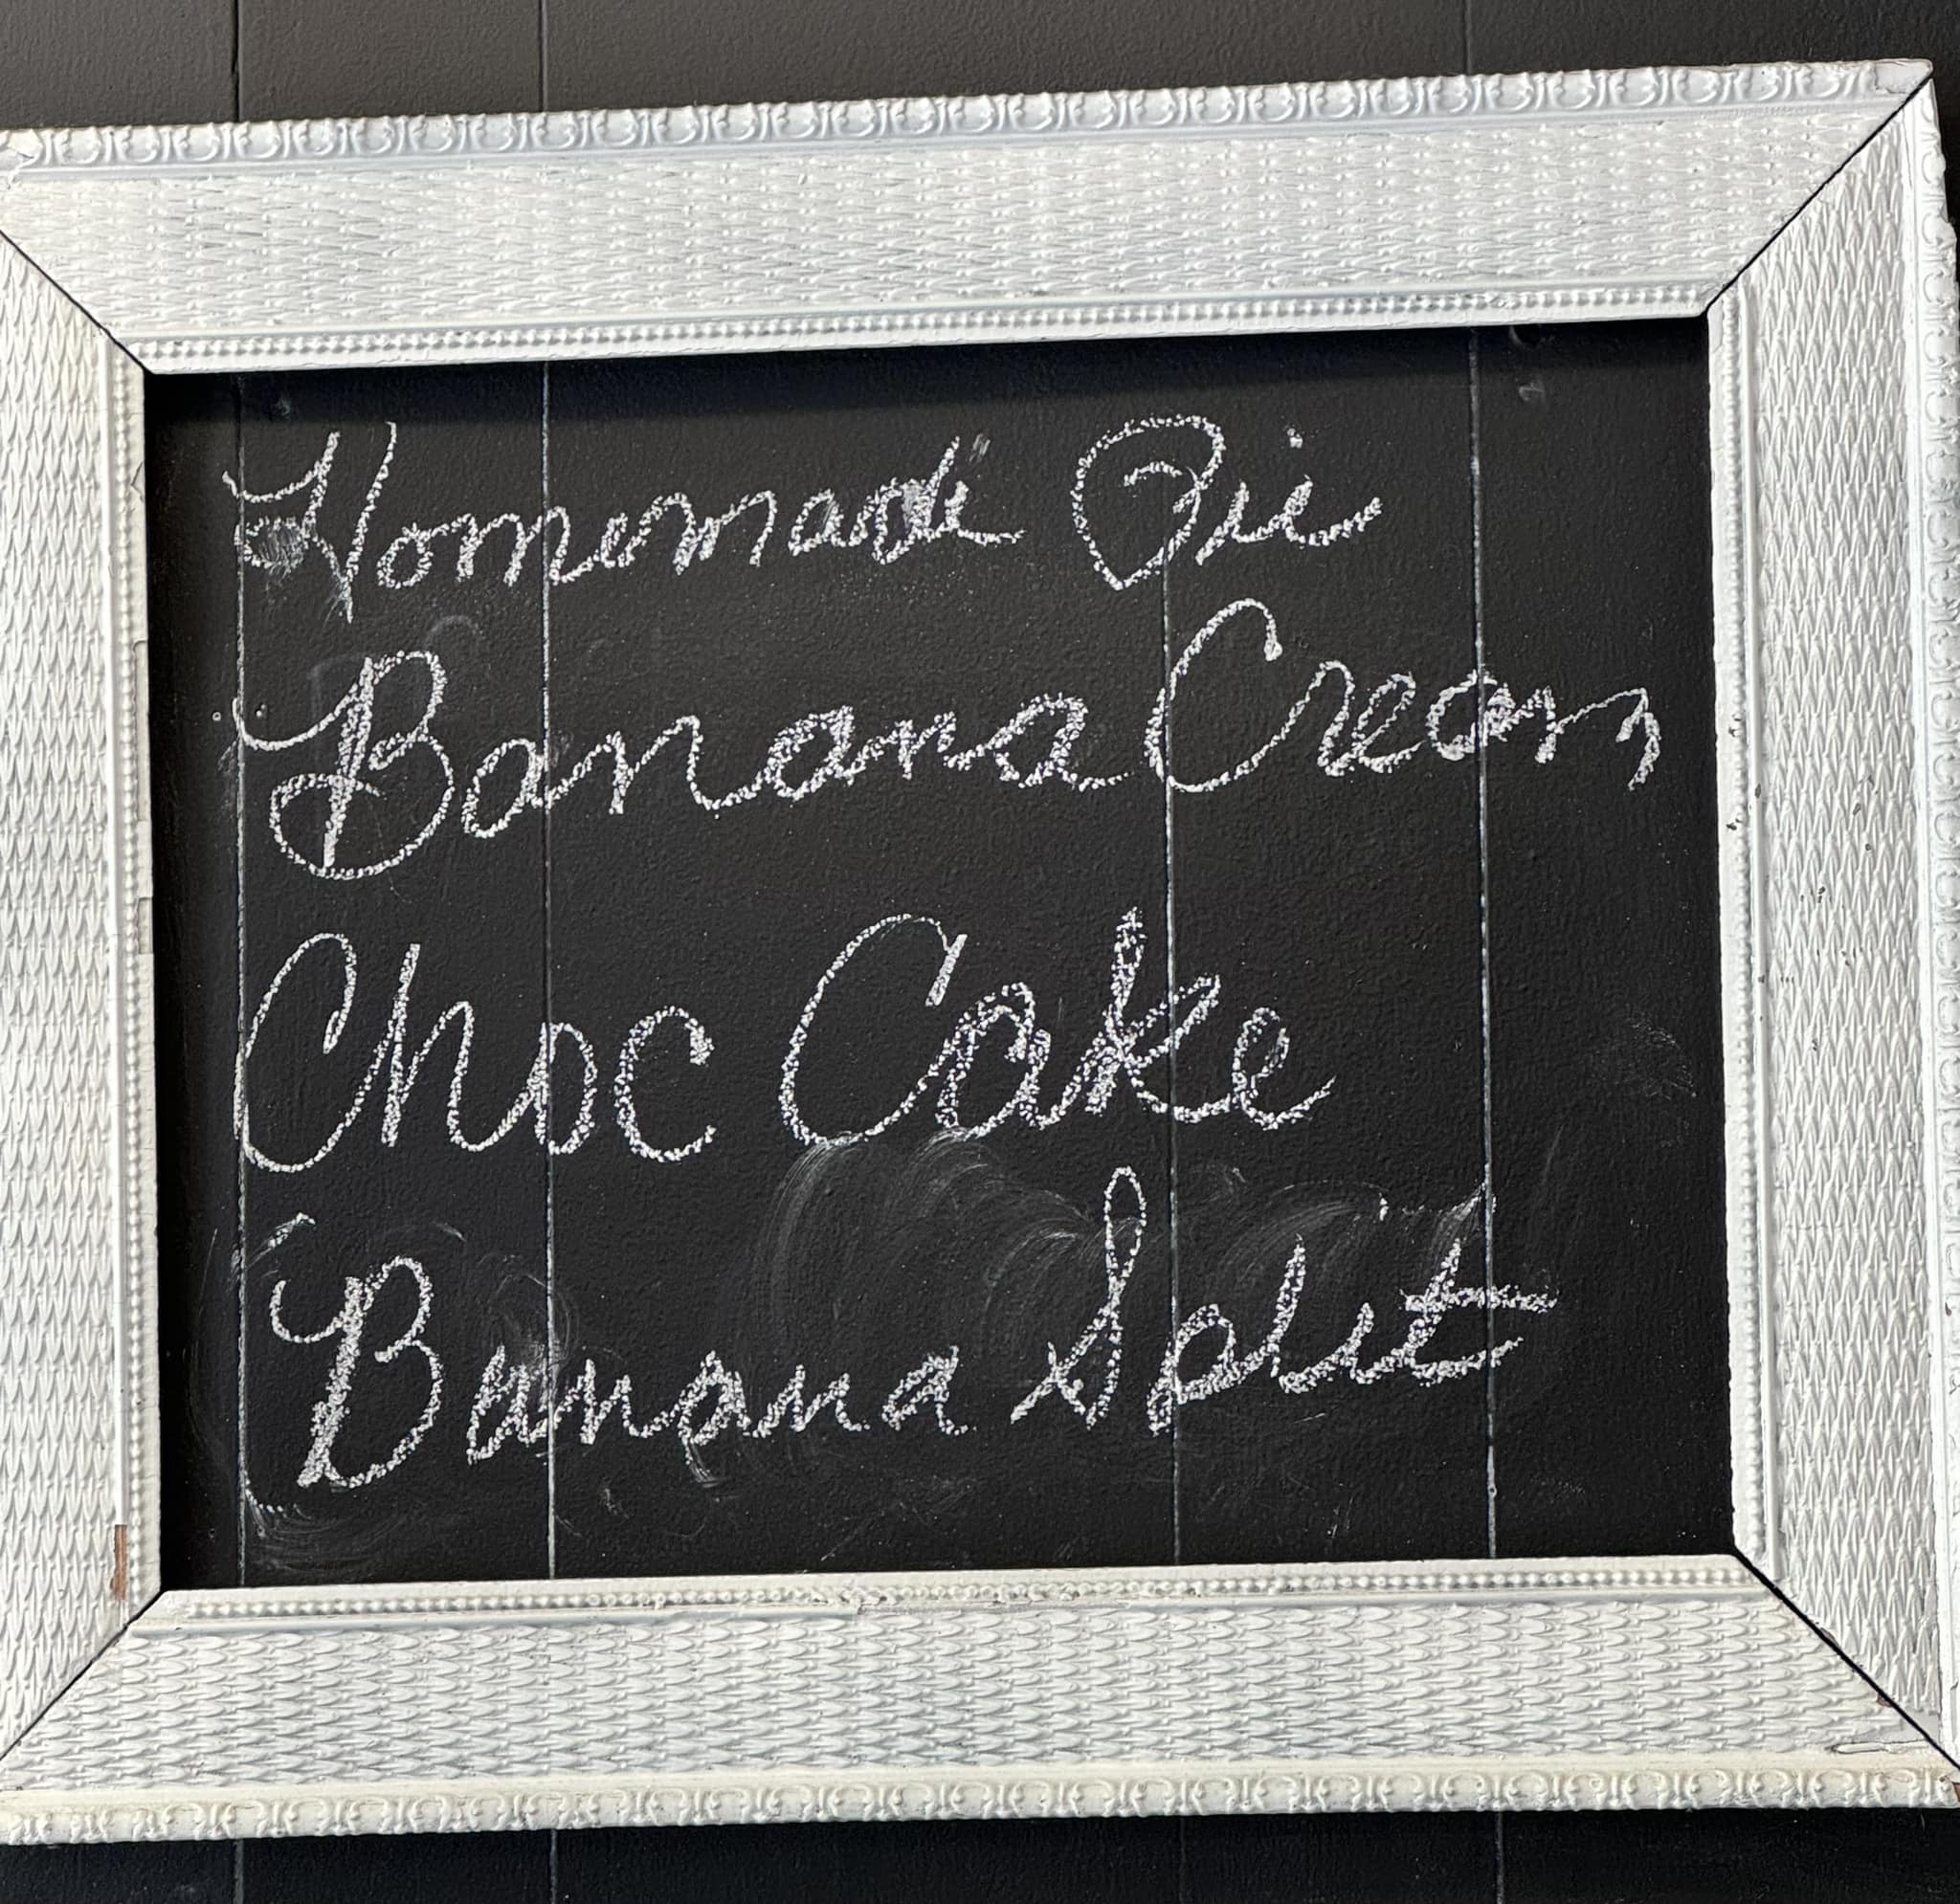 Homemade Pie
Banana Cream
Choc Cake
Banana Split